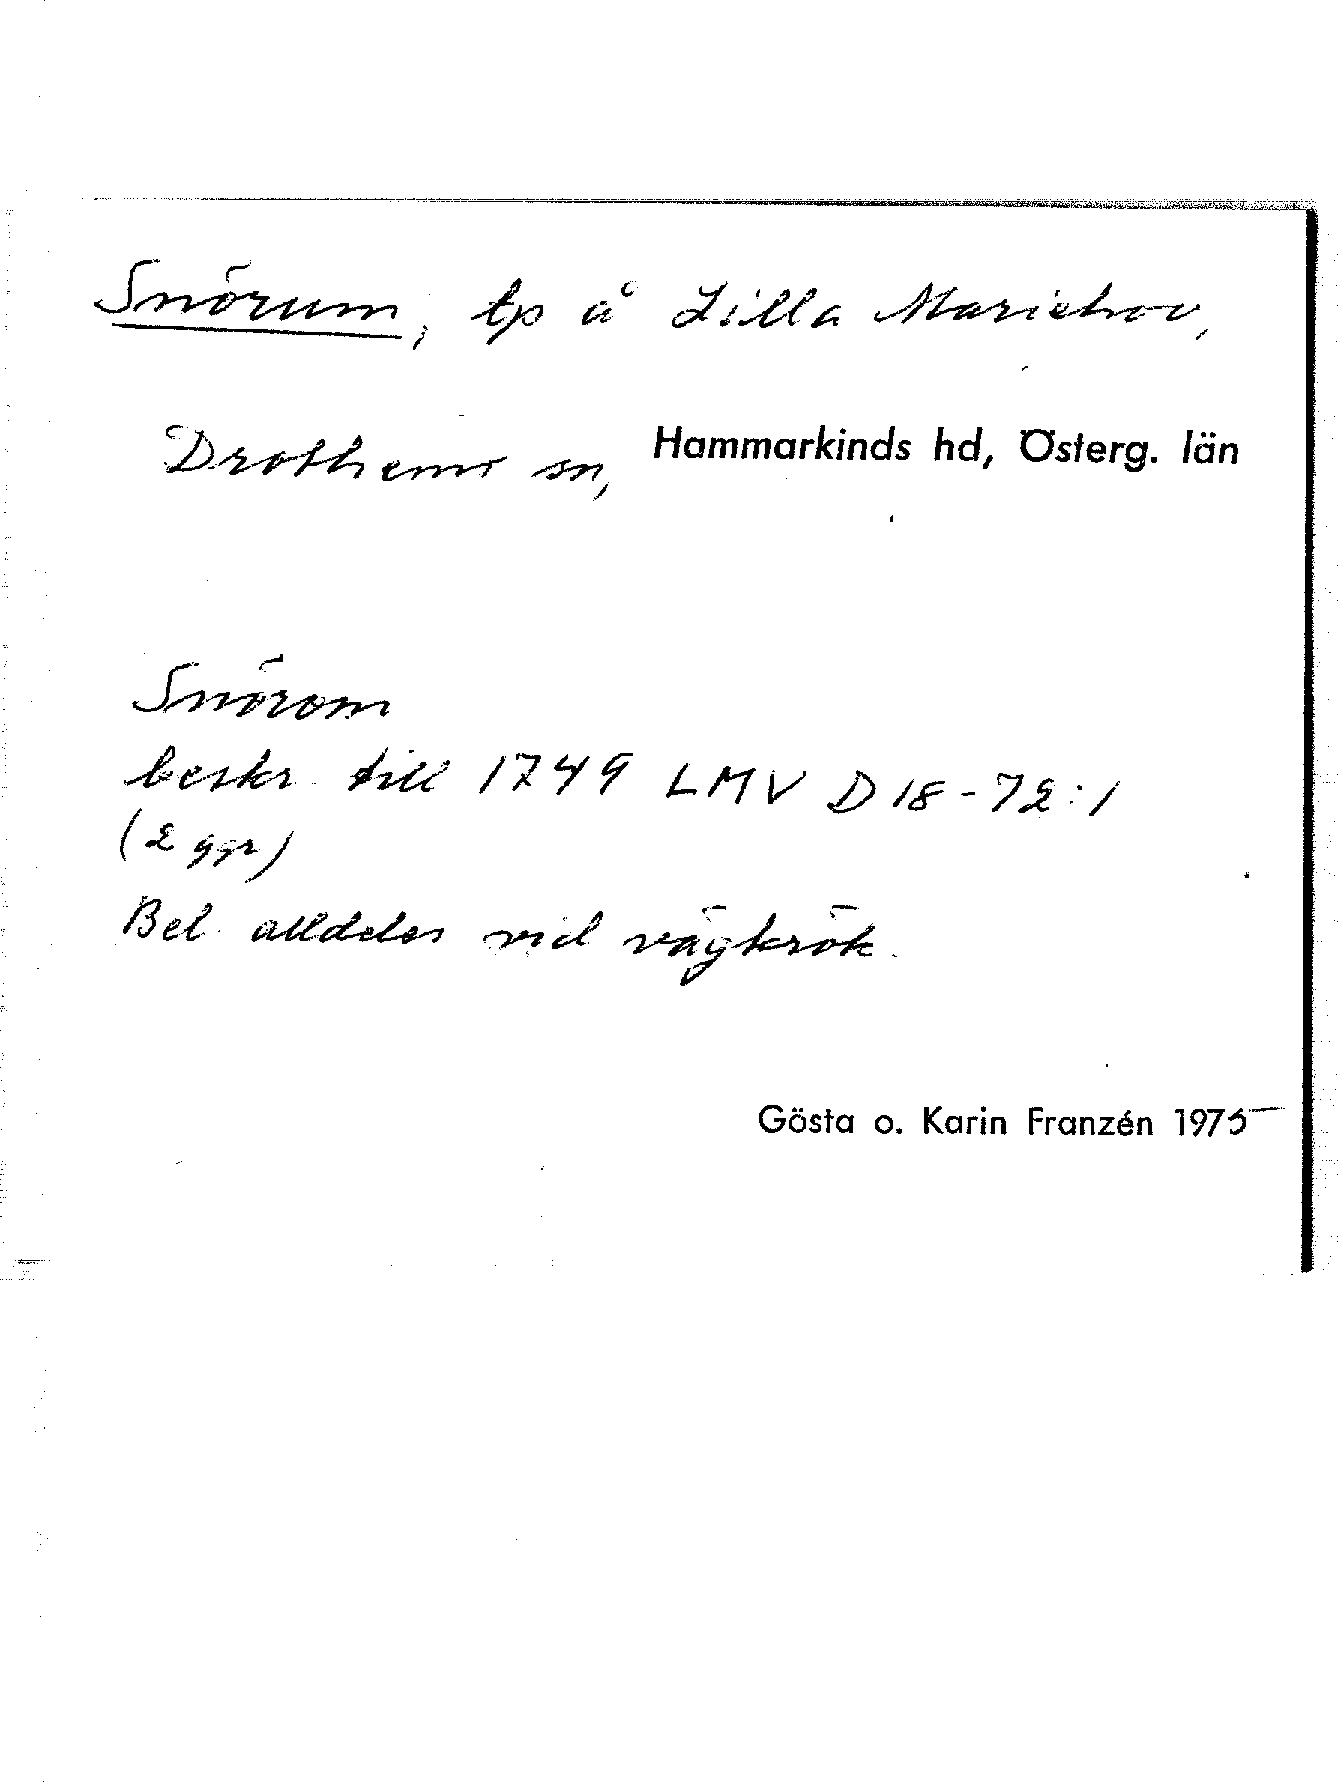 Snörum, tp å Lilla Mariehov,
Drothems sn, Hammarkinds hd, Österg. län
Snörom
beskr till 1749 LMV D 18-72:1
(2 ggr)
Bel. alldeles vid vägkrök.
Gösta o. Karin Franzén 1975